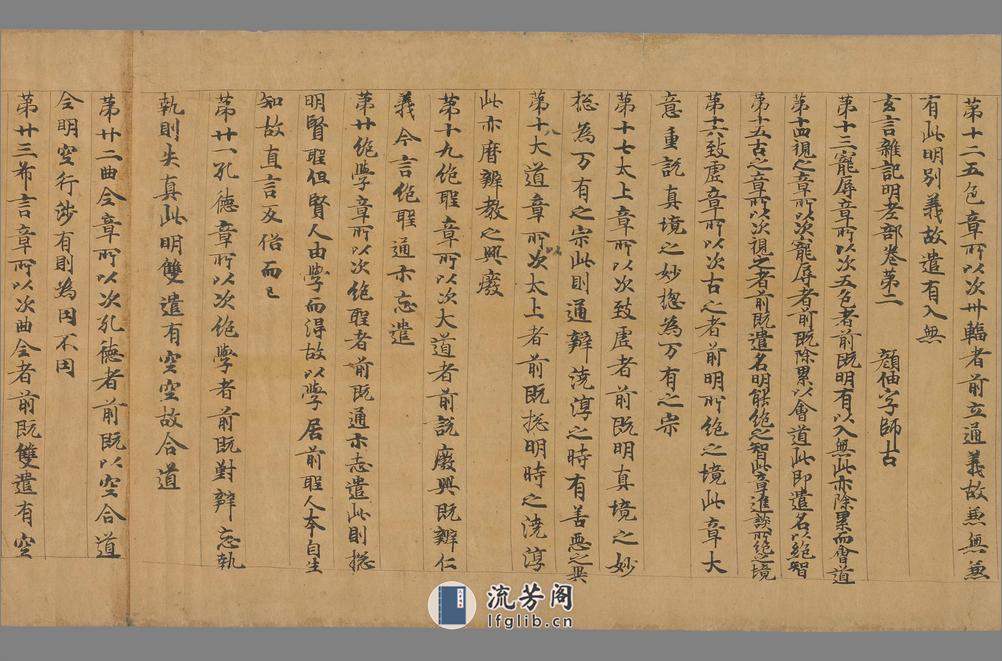 第十二五色章所以次卅輻者前立通義故兼無兼
有此明別義故遣有入無
玄言雜記明老部卷第二 顏伷字師古
第十三寵辱章所以次五色者前既明有以入無此亦除累而會道
第十四視之章所以次寵辱者前既除累以會道此即遣名以絕智
第十五古之章所以次視之者前既遣名明能絕之智此章進談所絕之境
第十六致虛章所以次古之者前明所絕之境此章大
意重說真境之妙揔為万有之宗
第十七太上章所以次致虛者前既明真境之妙
揔為万有之宗此則通辯澆淳之時有善惡之異
第十八大道章所以次太上者前既揔明時之澆淳
此亦曆辯教之興廢
第十九絕聖章所以次大道者前說廢興既辨仁
義今言絕聖通示忘遣
第廿絕學章所以次絕聖者前既通示忘遣此則揔
明賢聖但賢人由學而得故以學居前聖人本自生
知故直言反俗而已
第廿一孔德章所以次絕學者前既對辯忘執
執則失真此明雙遣有空空故合道
第廿二曲全章所以次孔德者前既以空合道
今明空行涉有則為因不因
第廿三希言章所以次曲全者前既雙遣有空
流芳阁
lfglib.cn